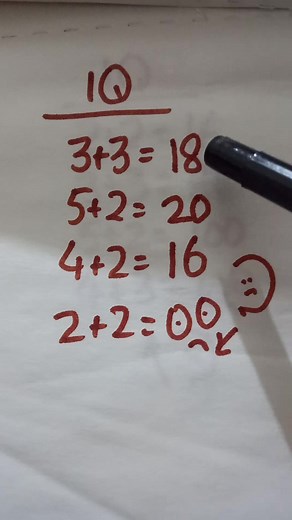 IQ
3+3=18
5+2=20
4+2=16
2+2=00